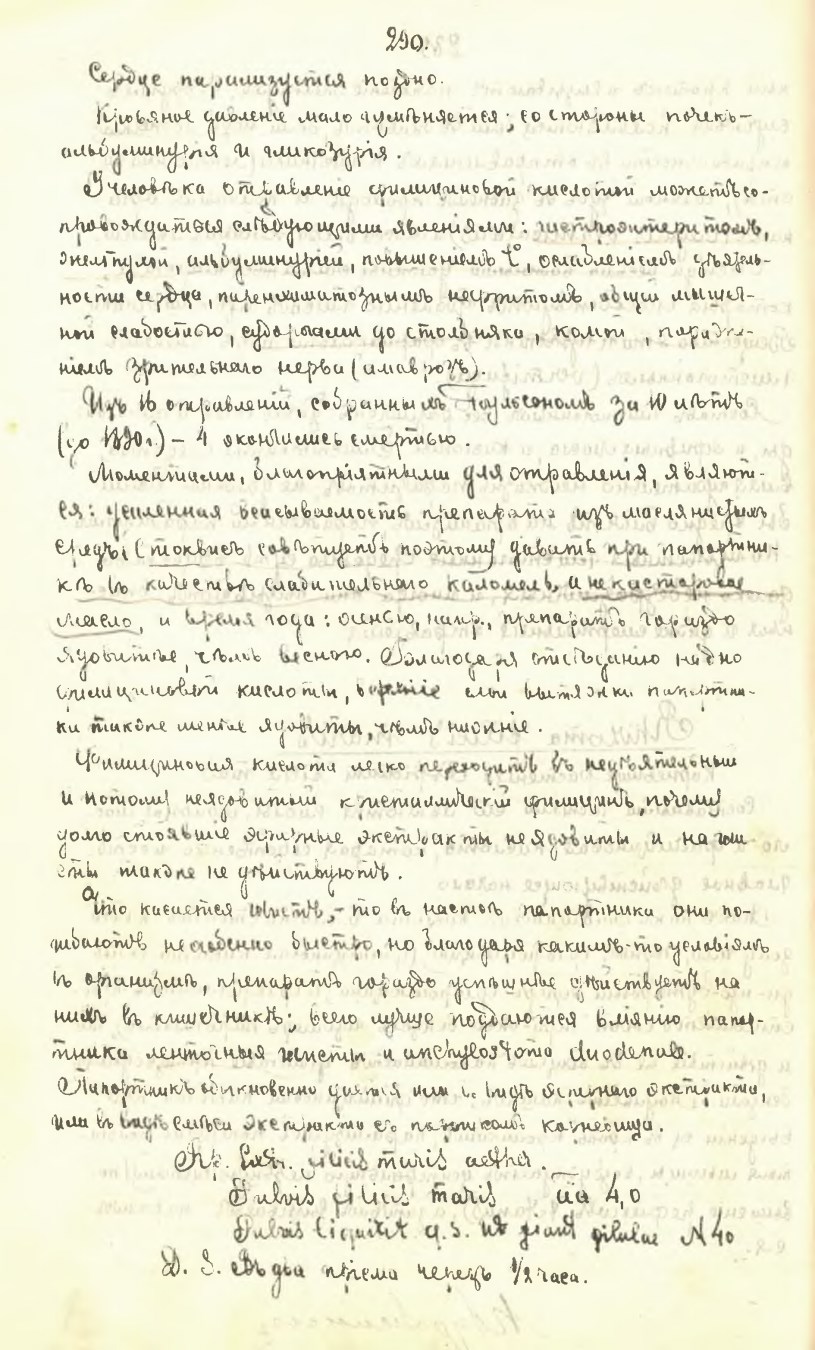 290.
Сердце парализуется поздно.
Кровяное давленіе мало измѣняется; со стороны почекъ –
альбуминурія и гликозурія.
У человѣка отравленіе филициновой кислотой можетъ со-
провождаться слѣдующими явленіями: гастроэнтеритомъ,
альбуминуріей, повышеніемъ t°, ослабленіемъ дѣятель-
ности сердца, паренхиматознымъ нефритомъ, общей мышеч-
ной слабостью, судорогами до столбняка, комой, пораже-
ніемъ зрительнаго нерва (амаврозъ).
Изъ 16 отравленій, собранныхъ Паульсономъ за 10 лѣтъ
(до 1890 г.) – 4 окончились смертью.
Моментами, благопріятными для отравленія, являют-
ся: усиленная всасываемость препарата изъ маслянистыхъ
средъ, (Штоквисъ совѣтуетъ поэтому давать при папортни-
кѣ въ качествѣ слабительнаго каломель, а не касторовое
масло, и время года: осенью, напр., препаратъ гораздо
ядовитѣе, чѣмъ весною. Благодаря отсѣданію на дно
филициновой кислоты, верхніе слои вытяжки папортни-
ка также менѣе ядовиты, чѣмъ нижніе.
Филициновая кислота легко переходитъ въ недѣятельный
и потому неядовитый кристаллическій филицинъ, почему
долго стоявшіе эфирные экстракты не ядовиты и на глис-
ты также не дѣйствуютъ.
Что касается глистъ, – то въ настоѣ папортника они по-
гибаютъ не особенно быстро, но благодаря какимъ-то условіямъ
въ организмѣ, препаратъ гораздо успѣшнѣе дѣйствуетъ на
нихъ въ кишечникѣ; всего лучше поддаются вліянію папор-
тника ленточныя глисты и anchylostoma duodenale.
Папортникъ обыкновенно дается или въ видѣ эфирнаго экстракта,
или въ видѣ смѣси экстракта съ порошкомъ корневища.
Rp. Extr. filicis maris aether.
Pulvis filicis maris āā 4,0
Pulvis liquirit q.s. ut fiant pilulae N 40
D. S. Въ два пріема черезъ 1/2 часа.